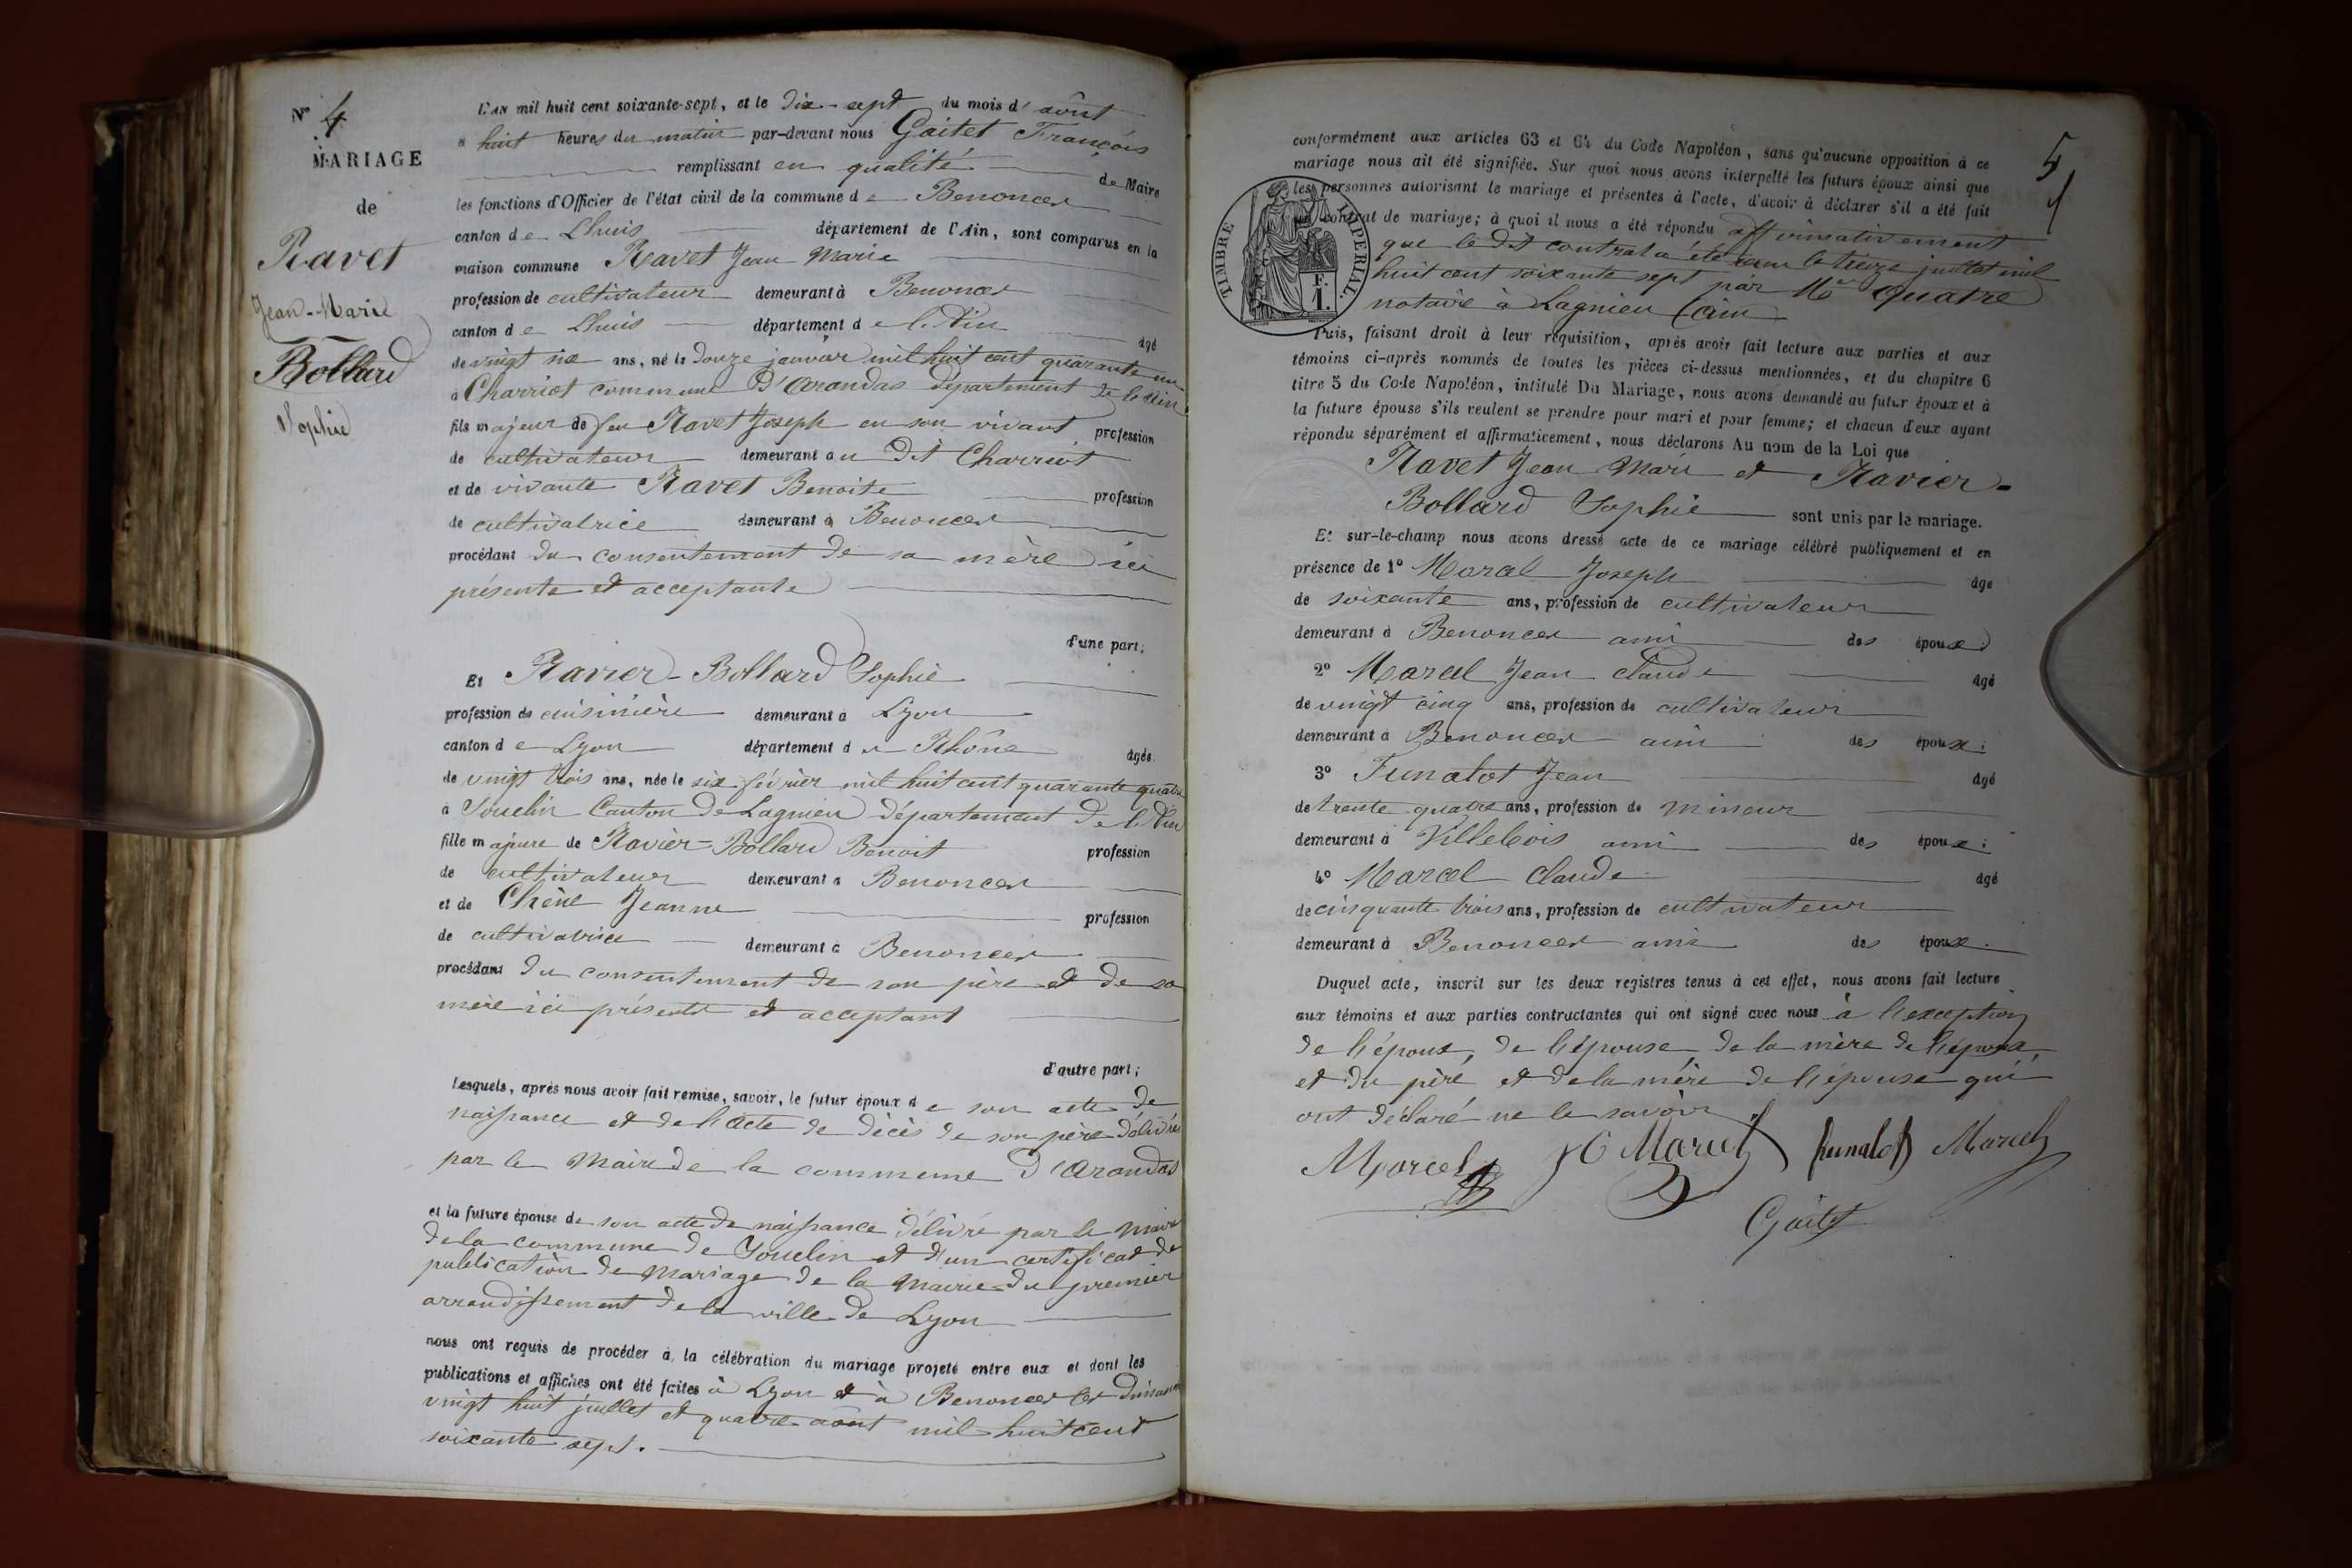 N° 4
MARIAGE
de
Ravet
Jean-Marie
Bollard
Sophie
L'AN mil huit cent soixante-sept, et le Dix-sept du mois d'août
à huit heures du matin par-devant nous Gaitet François
remplissant en qualité de Maire
les fonctions d'Officier de l'état civil de la commune de Benonces
canton de Lhuis département de l'Ain, sont comparus en la
maison commune Ravet Jean Marie
profession de cultivateur demeurant à Benonces
canton de Lhuis département de l'Ain âgé
de vingt six ans, né le Douze janvier mil huit cent quarante un
à Charriot commune D'Arandas Département de l'Ain
fils majeur de feu Ravet Joseph en son vivant profession
de cultivateur demeurant au Dit Charriot
et de vivante Ravet Benoite profession
de cultivatrice demeurant à Benonces
procédant du consentement de sa mère ici
présente et acceptante
d'une part;
Et Ravier-Bollard Sophie
profession de cuisinière demeurant à Lyon
canton de Lyon département du Rhône âgée
de vingt trois ans, née le six février mil huit cent quarante quatre
à Souclin Canton De Lagnieu Département De l'Ain
fille majeure de Ravier-Bollard Benoit profession
de cultivateur demeurant à Benonces
et de Chêne Jeanne profession
de cultivatrice demeurant à Benonces
procédant du consentement de son père et de sa
mère ici présents et acceptant
d'autre part;
Lesquels, après nous avoir fait remise, savoir, le futur époux de son acte de
naissance et de l'acte de Décès de son père Délivrés
par le Maire de la commune D'Arandas
et la future épouse de son acte de naissance délivré par le Maire
de la commune de Souclin et d'un certificat de
publication de Mariage de la Mairie du premier
arrondissement de la ville de Lyon
nous ont requis de procéder à la célébration du mariage projeté entre eux et dont les
publications et affiches ont été faites à Lyon et à Benonces les Dimanches
vingt huit juillet et quatre août mil huit cent
soixante sept.
5
conformément aux articles 63 et 64 du Code Napoléon, sans qu'aucune opposition à ce
mariage nous ait été signifiée. Sur quoi nous avons interpellé les futurs époux ainsi que
les personnes autorisant le mariage et présentes à l'acte, d'avoir à déclarer s'il a été fait
un contrat de mariage; à quoi il nous a été répondu affirmativement
que le dit contrat a été reçu le treize juillet mil
huit cent soixante sept par Me Quatre
notaire à Lagnieu (ain
TIMBRE IMPERIAL.
F.
1.
Puis, faisant droit à leur réquisition, après avoir fait lecture aux parties et aux
témoins ci-après nommés de toutes les pièces ci-dessus mentionnées, et du chapitre 6
titre 5 du Code Napoléon, intitulé Du Mariage, nous avons demandé au futur époux et à
la future épouse s'ils veulent se prendre pour mari et pour femme; et chacun d'eux ayant
répondu séparément et affirmativement, nous déclarons Au nom de la Loi que
Ravet Jean Marie et Ravier-
Bollard Sophie sont unis par le mariage.
Et sur-le-champ nous avons dressé acte de ce mariage célébré publiquement et en
présence de 1° Marcel Joseph âgé
de soixante ans, profession de cultivateur
demeurant à Benonces ami des époux
2° Marcel Jean claude âgé
de vingt cinq ans, profession de cultivateur
demeurant à Benonces ami des époux;
3° Funalot Jean âgé
de trente quatre ans, profession de mineur
demeurant à Villebois ami des époux;
4° Marcel Claude âgé
de cinquante trois ans, profession de cultivateur
demeurant à Benonces ami des époux.
Duquel acte, inscrit sur les deux registres tenus à cet effet, nous avons fait lecture
aux témoins et aux parties contractantes qui ont signé avec nous à l'exception
de l'époux, de l'épouse, de la mère de l'époux,
et du père et de la mère de l'épouse qui
ont déclaré ne le savoir.
Marcel JC Marcel funalot Marcel
Gaitet